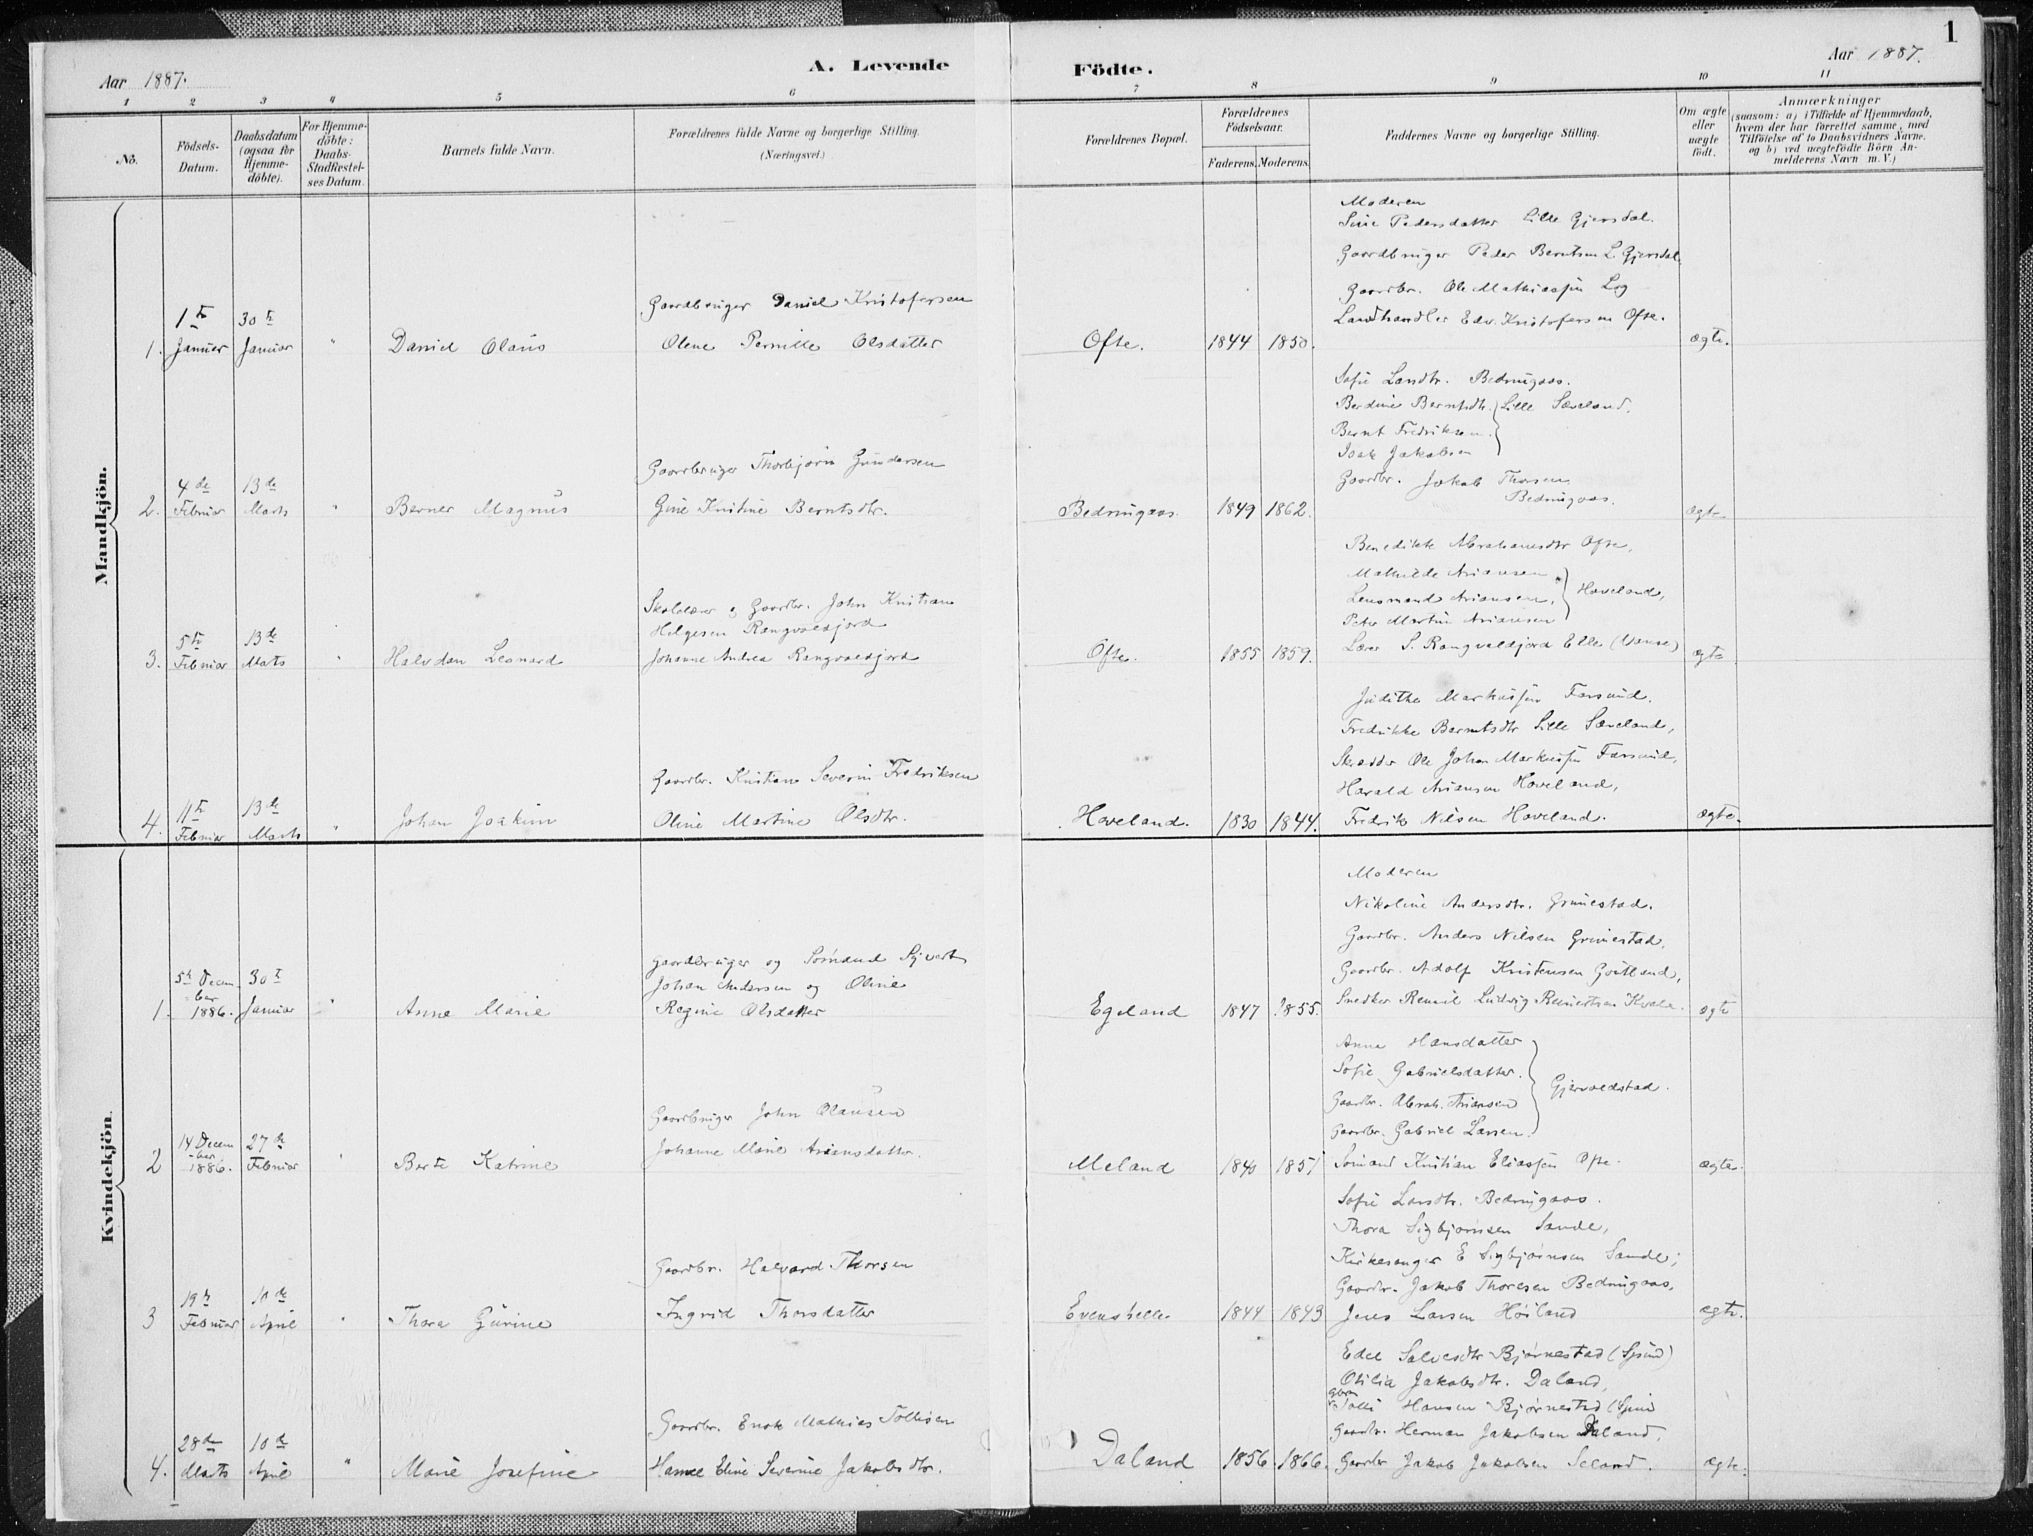 1
Aar 1887.
A. Levende
Födte.
Aar 1887.
1 2 3 4 5 6 7 8 9 10 11
No.
Födsels-
Datum.
Daabsdatum
(ogsaa för
Hjemme-
döbte).
For Hjemme-
döbte:
Daabs-
Stadfæstel-
ses Datum.
Barnets fulde Navn.
Forældrenes fulde Navne og borgerlige Stilling.
(Næringsvei.)
Forældrenes Bopæl.
Forældrenes
Födselsaar.
Faderens. Moderens.
Faddernes Navne og borgerlige Stilling.
Om ægte
eller
uægte
födt.
Anmærkninger
(saasom: a) i Tilfælde af Hjemmedaab,
hvem der har forrettet samme, med
Tilföielse af to Daabsvidners Navne,
og b) ved uægtefödte Börn An-
melderens Navn m. V.)
Mandkjön.
1. 1te Januar
30te Januar
"
Daniel Olaus
Gaardbruger Daniel Kristofersen
Olene Pernille Olsdatter
Ofte.
1844 1850.
Moderen
Sine Pedersdatter Lille Gjersdal.
Gaardbruger Peder Berntsen L Gjersdal.
Gaardbr. Ole Mathiassen Log
Landhandler Edv. Kristofersen Ofte.
ægte.
2. 4de Februar
13de Marts
"
Berner Magnus
Gaardbruger Thorbjørn Gundersen
Gine Kristine Berntsdtr.
Bedringaas.
1849 1862.
Sofie Larsdtr. Bedringaas.
Berdine Berntsdtr. } Lille Sæveland.
Bernt Fredriksen.
Isak Jakobsen
Gaardbr. Jakob Thorsen
Bedringaas.
ægte
3. 5te Februar
13de Mats
"
Halvdan Leonard
Skolelærer og Gaardbr. John Kristian
Helgesen Rangvaldsjord
Johanne Andrea Rangvaldsjord
Ofte.
1855 1859.
Benedikte Abrahamsdtr Ofte.
Mathilde Ariansen } Haveland,
Lensmand Ariansen,
Peter Martin Ariansen
Lærer S. Rangvaldsjord Elle (Vanse)
ægte
4. 11te Februar
13de Marts
"
Johan Joakim
Gaardbr. Kristian Severin Fredriksen
Oline Martine Olsdtr.
Haveland.
1830 1844.
Judithe Markussen Farsund.
Fredrikke Berntsdtr Lille Sæveland,
Skrædder Ole Johan Markussen Farsund,
Harald Ariansen Haveland,
Fredrik Nilsen Haveland.
ægte.
Kvindekjön.
1. 5te Decem-
ber
1886.
30te Januar
"
Anne Marie
Gaardbruger og Sømand Syvert
Johan Andersen og Oline
Regine Olsdatter
Egeland
1847 1855.
Moderen
Nikoline Andersdtr. Grimestad.
Gaardbr. Anders Nilsen Grimestad,
Gaardbr. Adolf Kristensen
Snedker Ludwig Reinertsen Kvale.
ægte
2 14 Decem-
ber
1886.
27de Februar
"
Berte Katrine
Gaardbruger John Olausen
Johanne Marie Ariansdatter.
Meland
1840 1851
Anna Hansdatter } Gjervoldstad.
Sofie Gabrielsdatter.
Gaardbr. Abrah. Ariansen
Gaardbr. Gabriel Larsen.
Sømand Kristian Eliassen Ofte.
ægte.
3 19de Februar
10de April
"
Thora Gurine
Gaardbr. Halvard Thorsen
Ingrid Thorsdatter
Evenshelle.
1844 1843
Sofie Larsdtr. Bedringaas.
Thora Sigbjørnsen Sande,
Kirkesanger E Sigbjørnsen Sande;
Gaardbr. Jakob Thoresen Bedringaas.
Jens Larsen Høiland
ægte.
4. 28de Mats
10de April
"
Marie Josefine
Gaardbr. Enok Mathias Tollisen
Hanne Eline Severine Jakobsdtr.
Daland
1856 1866.
Edel Salvesdtr Bjørnestad (Spind)
Otilia Jakobsdtr. Daland,
Tolli Hansen Bjørnestad (Spind
Gaardbr. Herman Jakobsen Daland.
Gaardbr Jakob Jakobsen Seland.
ægte.